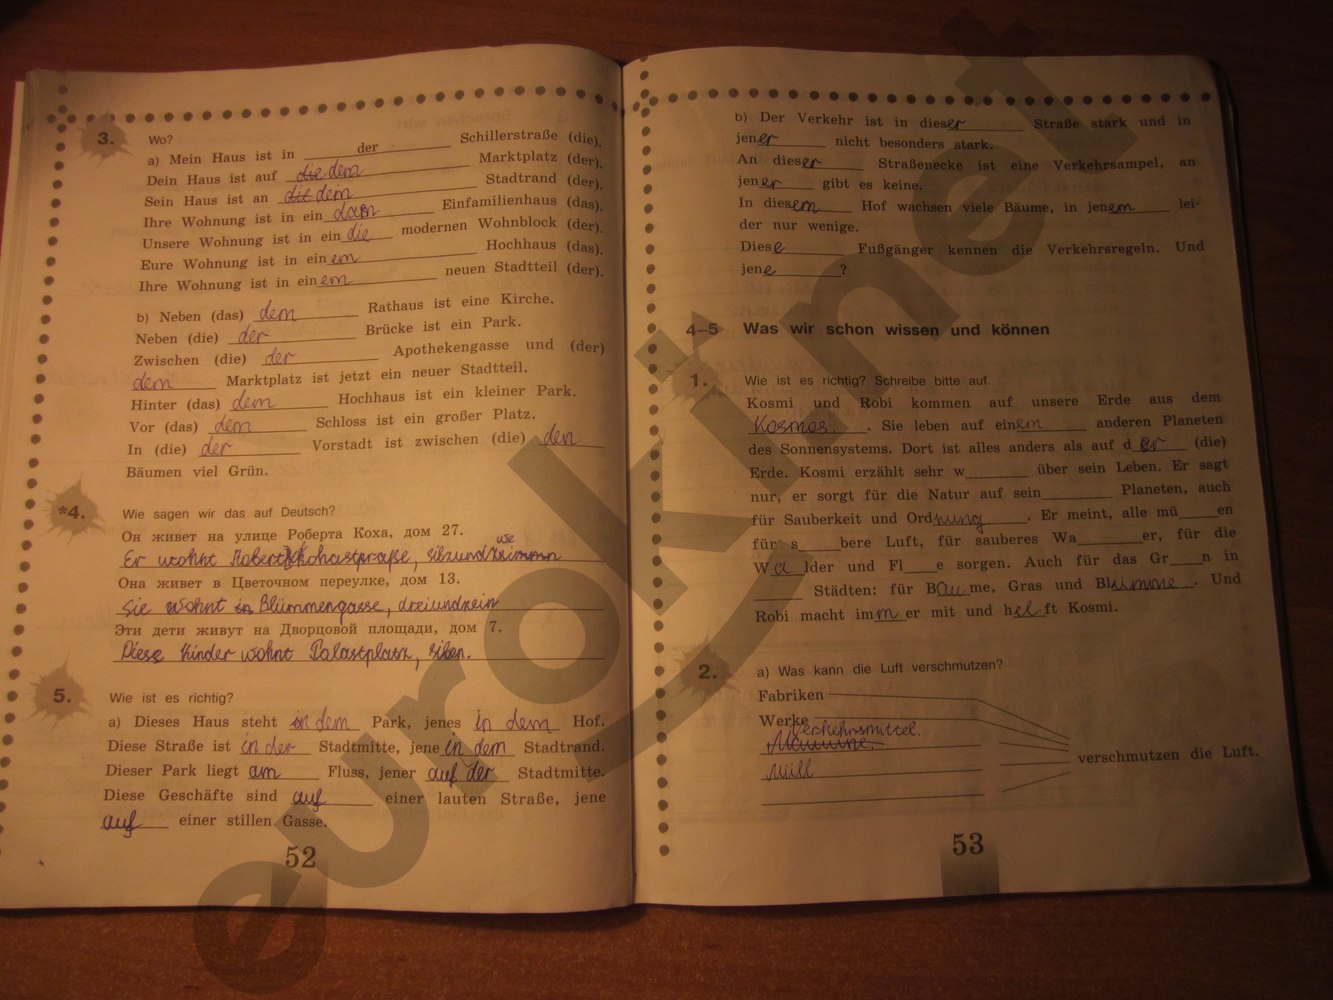 3. Wo?
a) Mein Haus ist in der Schillerstraße (die).
Dein Haus ist auf die dem Marktplatz (der).
Sein Haus ist an die dem Stadtrand (der).
Ihre Wohnung ist in ein Einfamilienhaus (das).
Unsere Wohnung ist in ein die modernen Wohnblock (der).
Eure Wohnung ist in ein em Hochhaus (das).
Ihre Wohnung ist in ein em neuen Stadtteil (der).
b) Neben (das) dem Rathaus ist eine Kirche.
Neben (die) der Brücke ist ein Park.
Zwischen (die) der Apothekengasse und (der)
dem Marktplatz ist jetzt ein neuer Stadtteil.
Hinter (das) dem Hochhaus ist ein kleiner Park.
Vor (das) dem Schloss ist ein großer Platz.
In (die) der Vorstadt ist zwischen (die) den
Bäumen viel Grün.
*4. Wie sagen wir das auf Deutsch?
Он живет на улице Роберта Коха, дом 27.
Er wohnt
Она живет в Цветочном переулке, дом 13.
Sie wohnt in Blümmengasse, dreiundzein
Эти дети живут на Дворцовой площади, дом 7.
Diese Kinder wohnt Palastplatz, siben.
5. Wie ist es richtig?
a) Dieses Haus steht in dem Park, jenes in dem Hof.
Diese Straße ist in der Stadtmitte, jene in dem Stadtrand.
Dieser Park liegt am Fluss, jener auf der Stadtmitte.
Diese Geschäfte sind auf einer lauten Straße, jene
auf einer stillen Gasse.
52
b) Der Verkehr ist in dieser Straße stark und in
jener nicht besonders stark.
An dieser Straßenecke ist eine Verkehrsampel, an
jener gibt es keine.
In diesem Hof wachsen viele Bäume, in jenem lei-
der nur wenige.
Diese Fußgänger kennen die Verkehrsregeln. Und
jene ?
4–5 Was wir schon wissen und können
1. Wie ist es richtig? Schreibe bitte auf.
Kosmi und Robi kommen auf unsere Erde aus dem
Kosmos. . Sie leben auf einem anderen Planeten
des Sonnensystems. Dort ist alles anders als auf d er (die)
Erde. Kosmi erzählt sehr w____ über sein Leben. Er sagt
nur, er sorgt für die Natur auf sein____ Planeten, auch
für Sauberkeit und Ordnung . Er meint, alle mü____en
für s____bere Luft, für sauberes Wa____er, für die
W a lder und Fl____e sorgen. Auch für das Gr____n in
____ Städten: für Bäume, Gras und Blumme . Und
Robi macht im m er mit und h el ft Kosmi.
2. a) Was kann die Luft verschmutzen?
Fabriken
Werke
Verkehrsmittel.
Müll
verschmutzen die Luft.
53
euroki.net